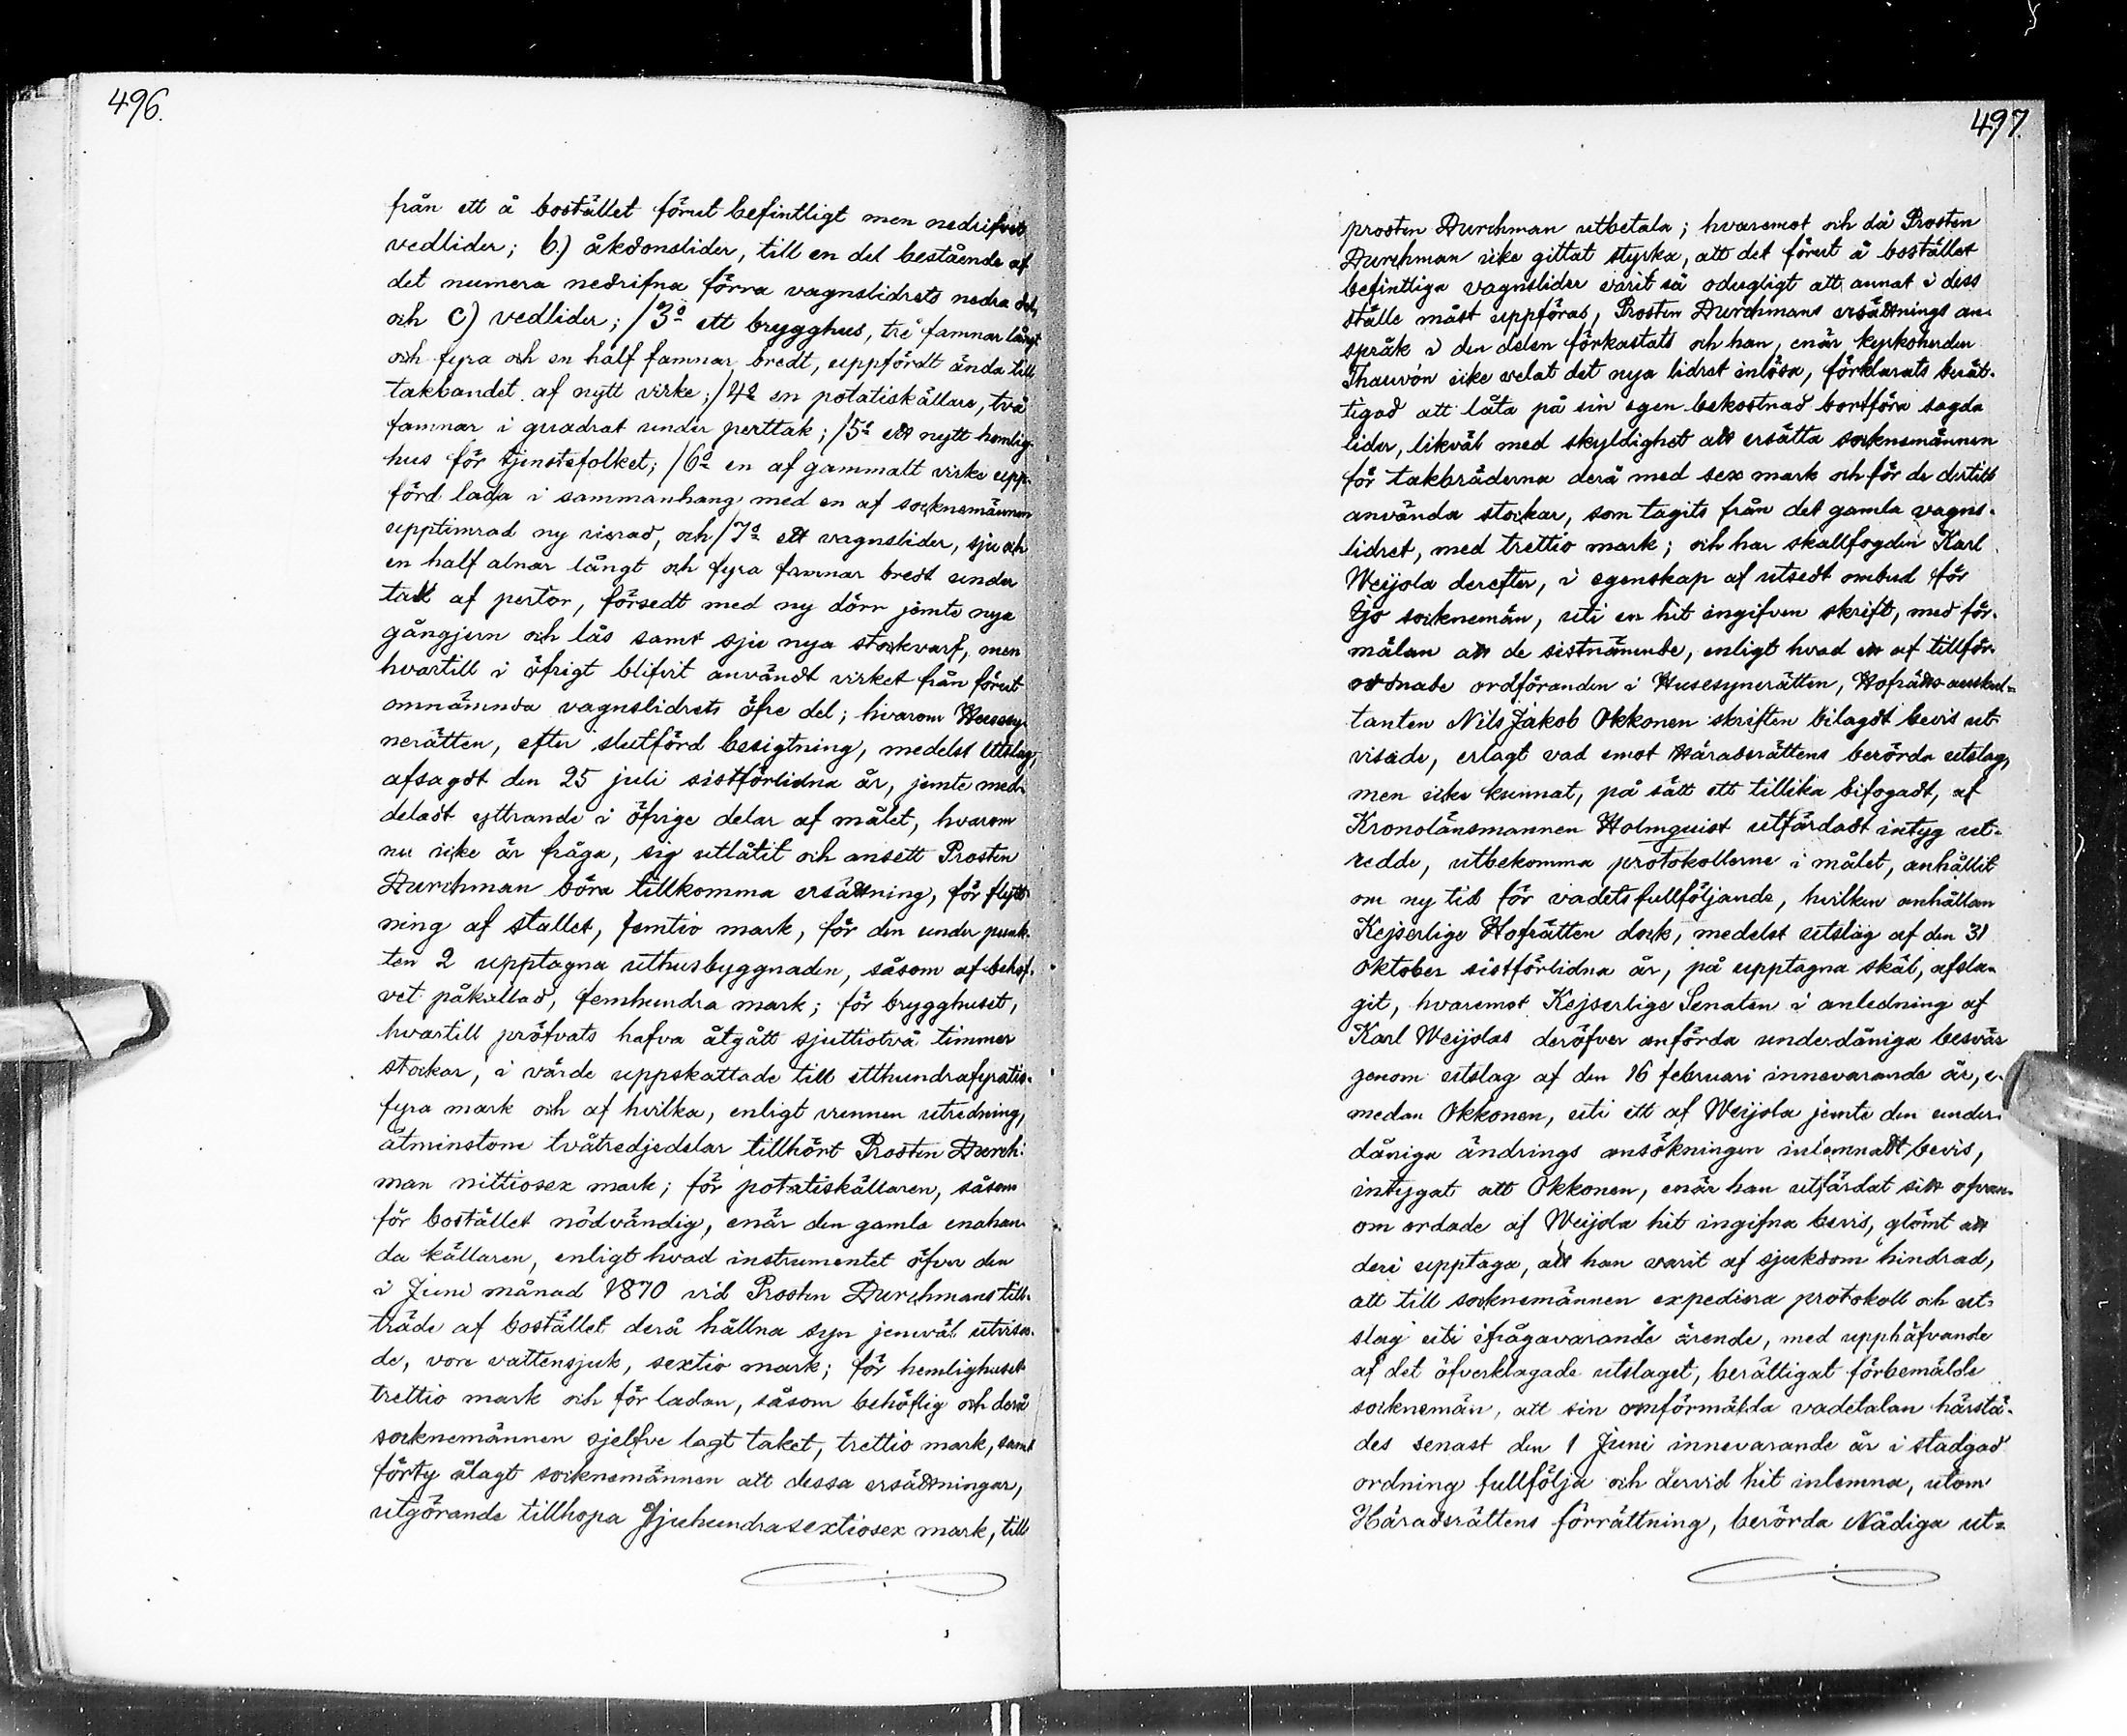 496.
från ett å bostället förut befintligt men nedrifvet
vedlider; b.) åkdonslider, till en del bestående af
det numera nedrifna förra vagnslidrets nedra del,
och c) vedlider; /3º ett brygghus, tre famnar långt
och fyra och en half famnar bredt, uppfördt ända till
takbandet af nytt virke; /4º en potatiskällare, två
famnar i quadrat under perttak; /5º ett nytt hemlig-
hus för tjenstefolket; /6º en af gammalt virke upp-
förd lada i sammanhang med en af socknemännen
upptimrad ny, och /7º ett vagnslider, sju och
en half alnar långt och fyra famnar bredt under
tak af pertor, försedt med ny dörr jemte nya
gångjern och lås samt sju nya stockvarf, men
hvartill i öfrigt blifvit användt virket från förut
omnämnda vagnslidrets öfre del; hvarom Husesy-
nerätten, efter slutförd besigtning, medelst Utslag,
afsagdt den 25 juli sistförlidna år, jemte med-
deladt yttrande i öfrige delar af målet, hvarom
nu icke är fråga, sig utlåtit och ansett Prosten
Durchman böra tillkomma ersättning, för flytt-
ning af stallet, femtio mark, för den under punk-
ten 2 upptagna uthusbyggnaden, såsom af behof-
vet påkallad, femhundra mark; för brygghuset,
hvartill pröfvats hafva åtgått sjuttiotvå timmer
stockar, i värde uppskattade till etthundrafyratio-
fyra mark och af hvilka, enligt vunnen utredning,
åtminstone tvåtredjedelar tillhört Prosten Durch-
man nittiosex mark; för potatiskällaren, såsom
för bostället nödvändig, enär den gamla enahan-
da källaren, enligt hvad instrumentet öfver den
i Juni månad 1870 vid Prosten Durchmans till-
träde af bostället derå hållna syn jemväl utvisa-
de, vore vattensjuk, sextio mark; för hemlighuset
trettio mark och för ladan, såsom behöflig och derå
socknemännen sjelfve lagt taket, trettio mark, samt
förty ålagt socknemännen att dessa ersättningar,
utgörande tillhopa Sjuhundrasextiosex mark, till
497.
prosten Durchman utbetala; hvaremot och då Prosten
Durchman icke gittat styrka, att det förut å bostället
befintliga vagnslider varit så odugligt att annat i dess
ställe måst uppföras, Prosten Durchmans ersättnings an-
språk i den delen förkastats och han, enär kyrkoherden
Thauvón icke velat det nya lidret inlösa, förklarats berät-
tigad att låta på sin egen bekostnad bortföra sagda
lider, likväl med skyldighet att ersätta socknemännen
för takbräderna derå med sex mark och för de dertill
använda stockar, som tagits från det gamla vagns-
lidret, med trettio mark; och har skallfogden Karl
Weijola derefter, i egenskap af utsedt ombud för
Ijo socknemän, uti en hit ingifven skrift, med för-
mälan att de sistnämnde, enligt hvad ett af tillför-
ordnade ordföranden i Husesynerätten, Hofrätts-auskul-
tanten Nils Jakob Okkonen skriften bilagdt bevis ut-
visade, erlagt vad emot Häradsrättens berörda utslag,
men icke kunnat, på sätt ett tillika bifogadt, af
Kronolänsmannen Holmquist utfärdadt intyg ut-
redde, utbekomma protokollerne i målet, anhållit
om ny tid för vadets fullföljande, hvilken anhållan
Kejserlige Hofrätten dock, medelst utslag af den 31
Oktober sistförlidna år, på upptagna skäl, afsla-
git, hvaremot Kejserlige Senaten i anledning af
Karl Weijolas deröfver anförda underdåniga besvär
genom utslag af den 16 februari innevarande år, e-
medan Okkonen, uti ett af Weijola jemte den under-
dåniga ändrings ansökningen inlemnadt bevis,
intygat att Okkonen, enär han utfärdat sitt ofvan-
om ordade af Weijola hit ingifna bevis, glömt att
deri upptaga, att han varit af sjukdom hindrad,
att till socknemännen expediera protokoll och ut-
slag uti ifrågavarande ärende, med upphäfvande
af det öfverklagade utslaget, berättigat förbemälde
socknemän, att sin omförmälda vadetalan härstä-
des senast den 1 Juni innevarande år i stadgad
ordning fullfölja och dervid hit inlemna, utom
Häradsrättens förrättning, berörda Nådiga ut-